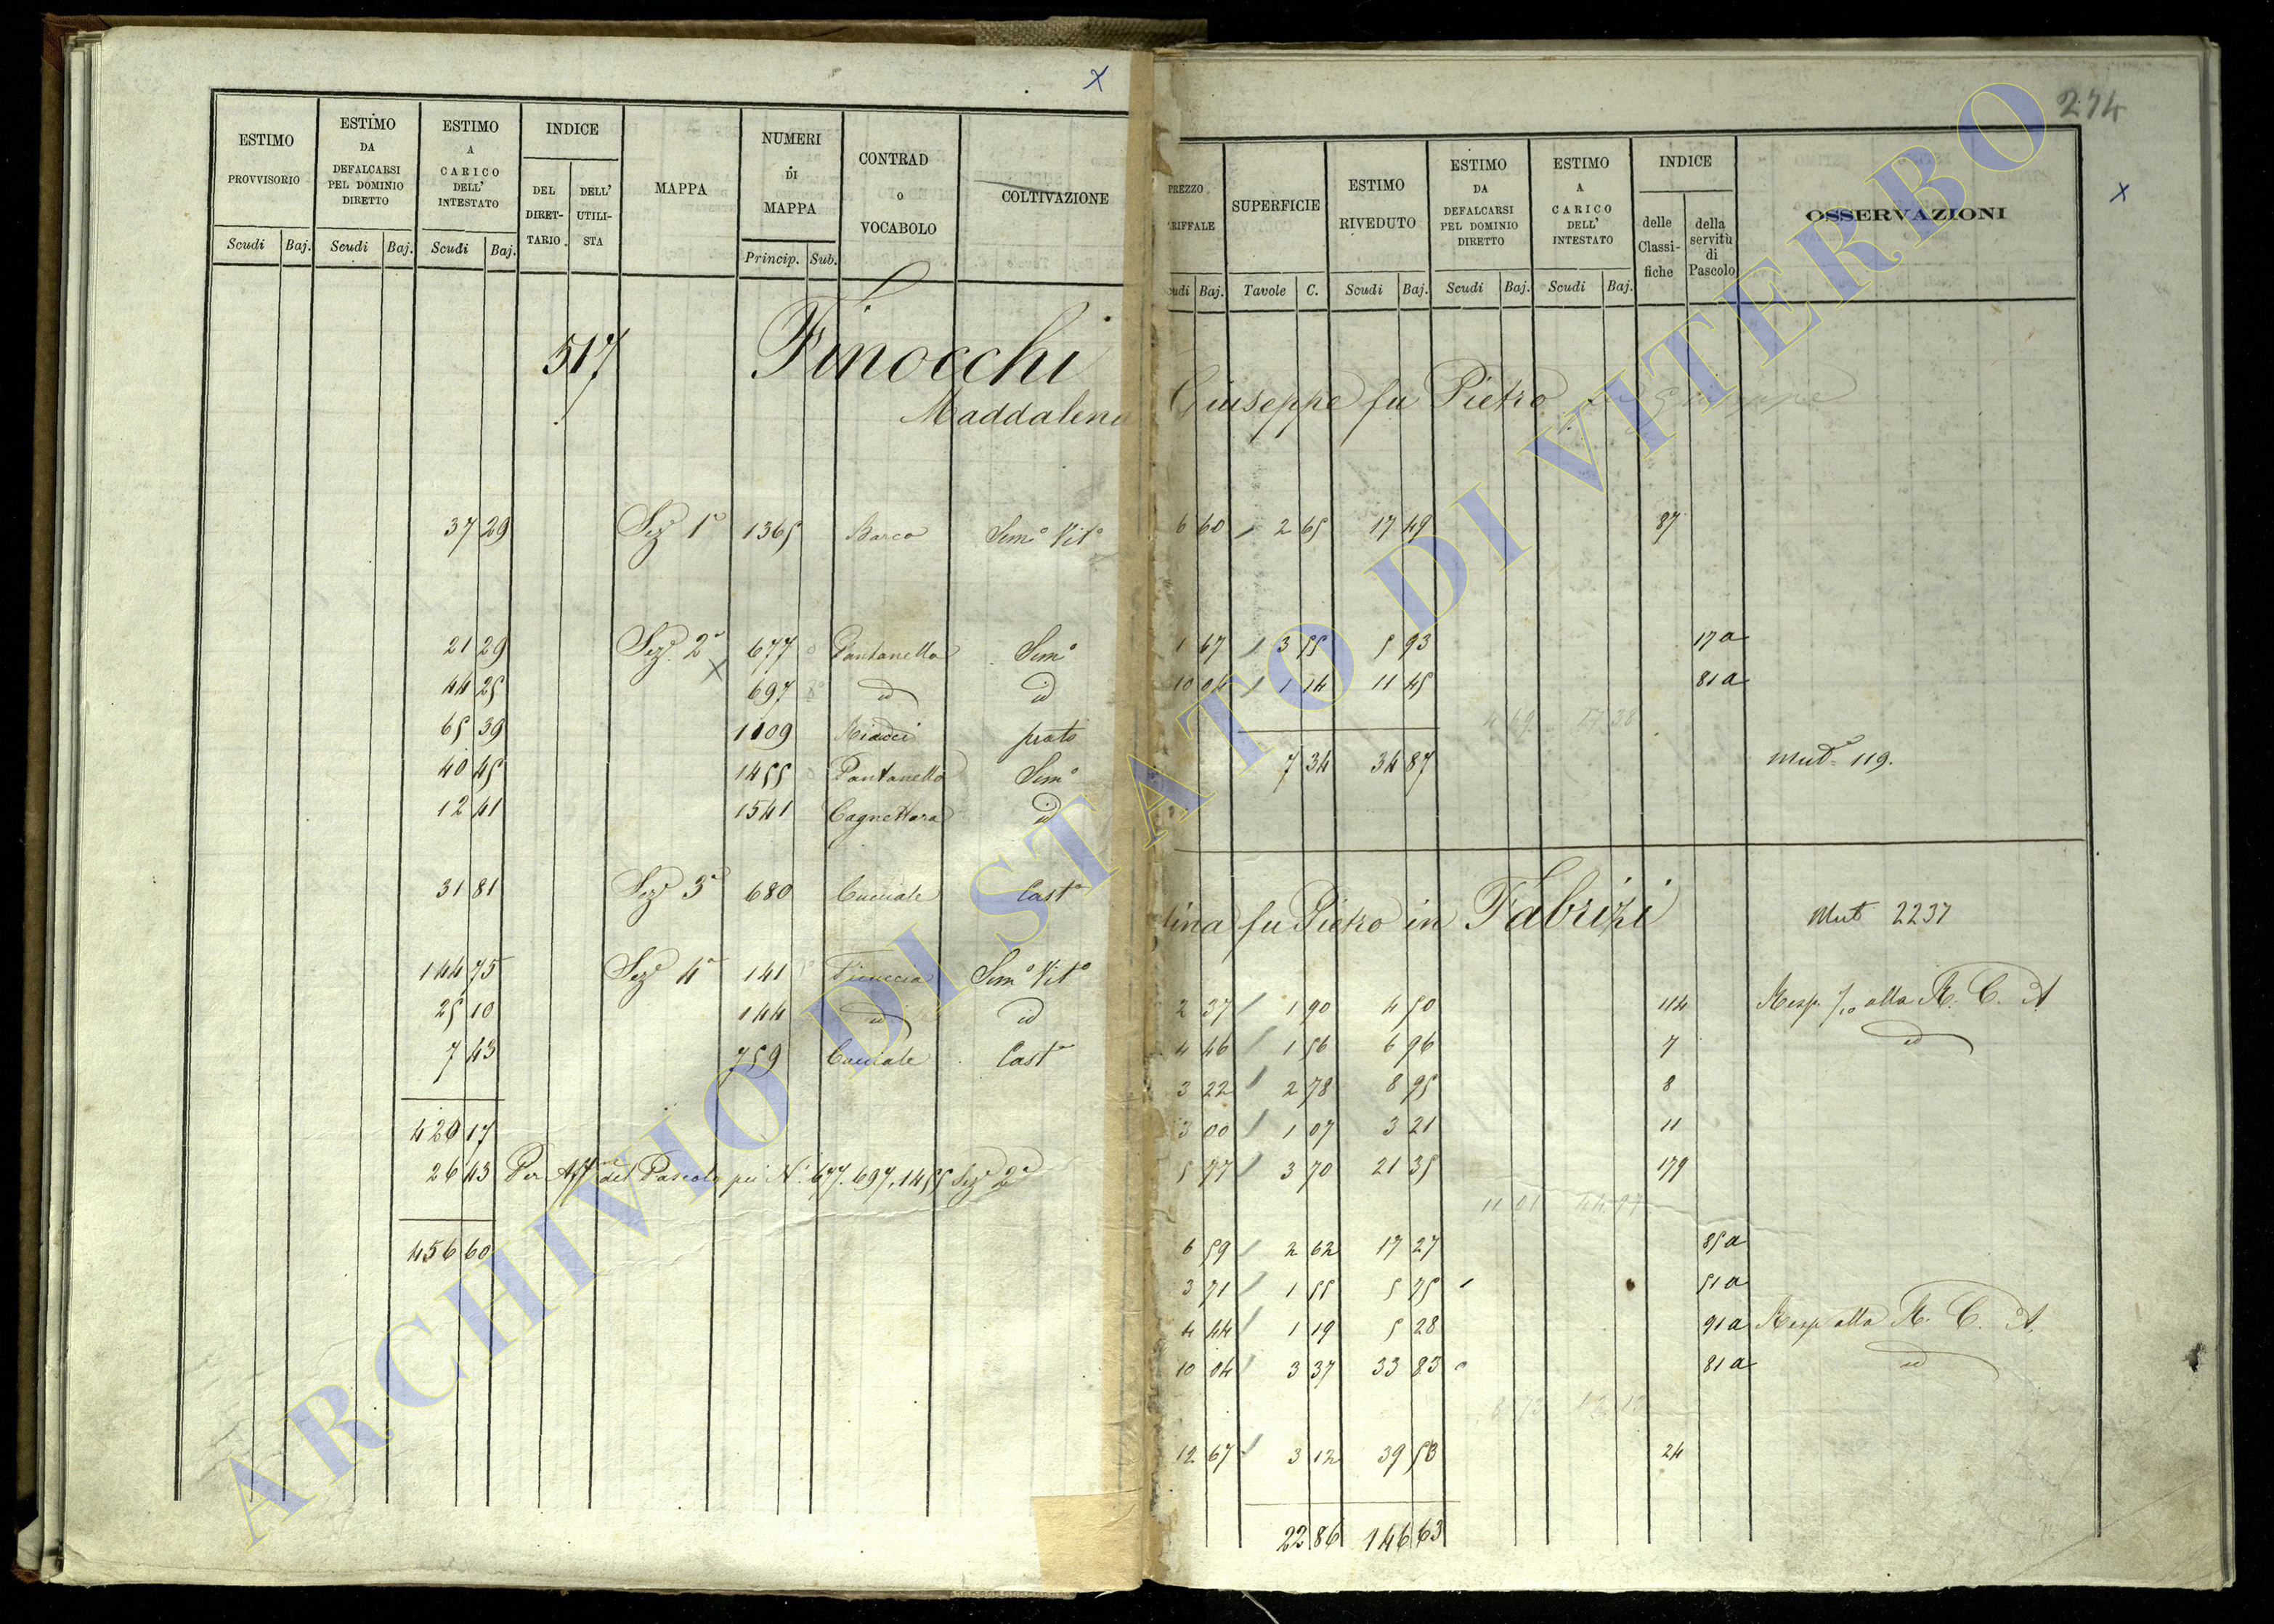 ESTIMO PROVVISORIO
Scudi Baj.
ESTIMO DA DEFALCARSI PEL DOMINIO DIRETTO
Scudi Baj.
ESTIMO A CARICO DELL' INTESTATO
Scudi Baj.
INDICE
DEL DIRETTARIO
DELL' UTILISTA
MAPPA
NUMERI DI MAPPA
Princip. Sub.
CONTRAD O VOCABOLO
COLTIVAZIONE
x
517 Finocchi
Maddalena
37 29 Sezᵉ 1ª 1365 Barco Semᵒ Vitᵒ
21 29 Sezᵉ 2ª 677 Pantanella Semᵒ
x
44 25 697 id id
65 39 1109 Riacci prato
40 45 1455 Pantanella Semᵒ
12 41 1541 Cagnettara id
31 81 Sezᵉ 3ª 680 Cucciale Castᵒ
144 75 Sezᵉ 4ª 141 Semᵒ Vitᵒ
25 10 144 id id
7 43 759 Cucciale Castᵒ
420 17
26 43 Per Affᵉ del Pascolo pei Nⁱ 677. 697. 1455 Sezᵉ 2ª
456 60
274
PREZZO RIFFALE
udi Baj.
SUPERFICIE
Tavole C.
ESTIMO RIVEDUTO
Scudi Baj.
ESTIMO DA DEFALCARSI PEL DOMINIO DIRETTO
Scudi Baj.
ESTIMO A CARICO DELL' INTESTATO
Scudi Baj.
INDICE
delle Classifiche
della servitù di Pascolo
OSSERVAZIONI
x
Giuseppe fu Pietro
6 60 2 65 17 49 87
1 67 3 55 5 93 17 a
10 04 1 14 11 45 81 a
4 69 17 38
7 34 34 87 Mutᵉ 119.
tina fu Pietro in Fabrizi Mut 2237
2 37 1 90 4 50 114 Resp. alla R. C. A
4 46 1 56 6 96 7 id
3 22 2 78 8 95 8
3 00 1 07 3 21 11
5 77 3 70 21 35 179
11 01 44 97
6 59 2 62 17 27 85 a
3 71 1 55 5 75 51 a
4 44 1 19 5 28 91 a Resp alla R. C. A.
10 04 3 37 33 83 81 a id
12 67 3 12 39 53 24
22 86 146 63
ARCHIVIO DI STATO DI VITERBO